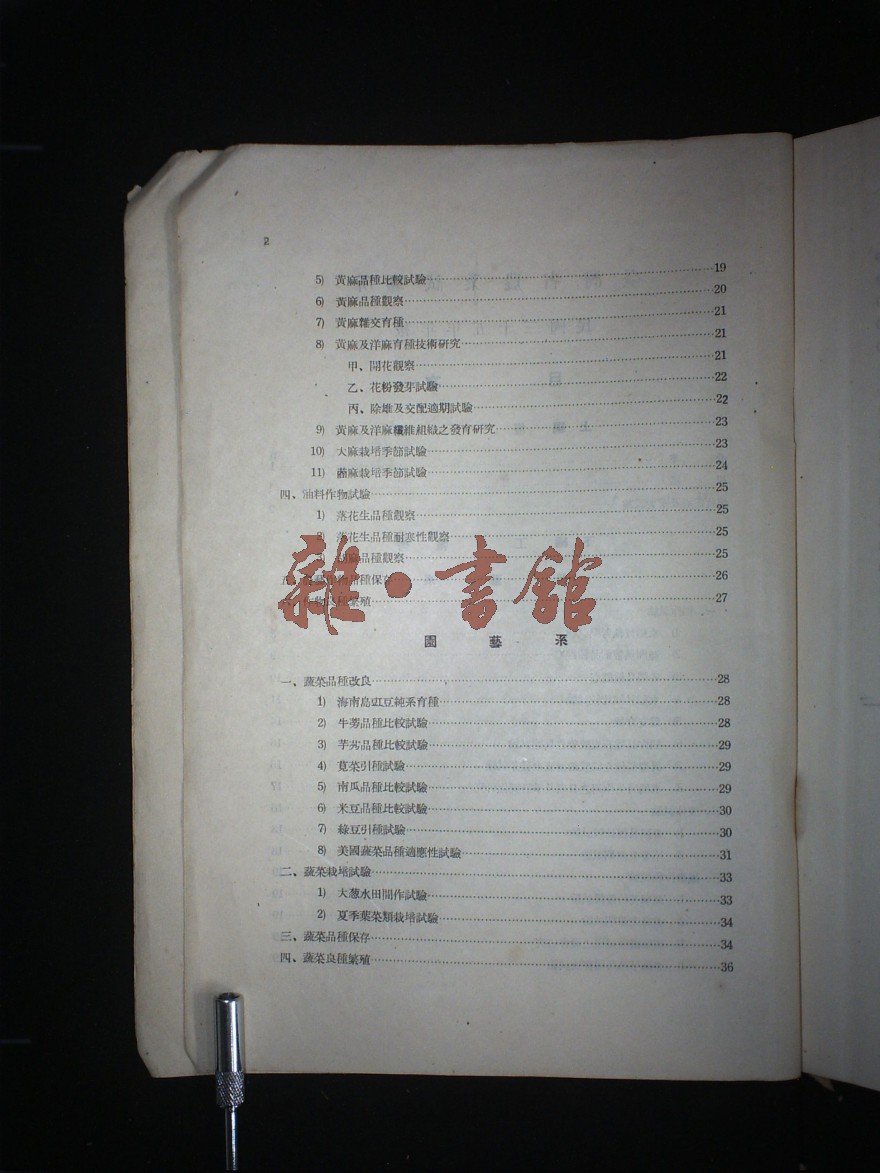 2
5) 黃麻品種比較試驗 19
6) 黃麻品種觀察 20
7) 黃麻雜交育種 21
8) 黃麻及洋麻育種技術研究 21
甲、開花觀察 21
乙、花粉發芽試驗 22
丙、除雄及交配適期試驗 22
9) 黃麻及洋麻纖維組織之發育研究 23
10) 大麻栽培季節試驗 23
11) 蔴栽培季節試驗 24
四、油料作物試驗 25
1) 落花生品種觀察 25
2) 落花生品種耐寒性觀察 25
胡麻品種觀察 25
種保存 26
繁殖 27
雜·書館
園藝系
一、蔬菜品種改良 28
1) 海南島豇豆純系育種 28
2) 牛蒡品種比較試驗 28
3) 芋艿品種比較試驗 29
4) 莧菜引種試驗 29
5) 南瓜品種比較試驗 29
6) 米豆品種比較試驗 30
7) 綠豆引種試驗 30
8) 美國蔬菜品種適應性試驗 31
二、蔬菜栽培試驗 33
1) 大蔥水田間作試驗 33
2) 夏季葉菜類栽培試驗 34
三、蔬菜品種保存 34
四、蔬菜良種繁殖 36